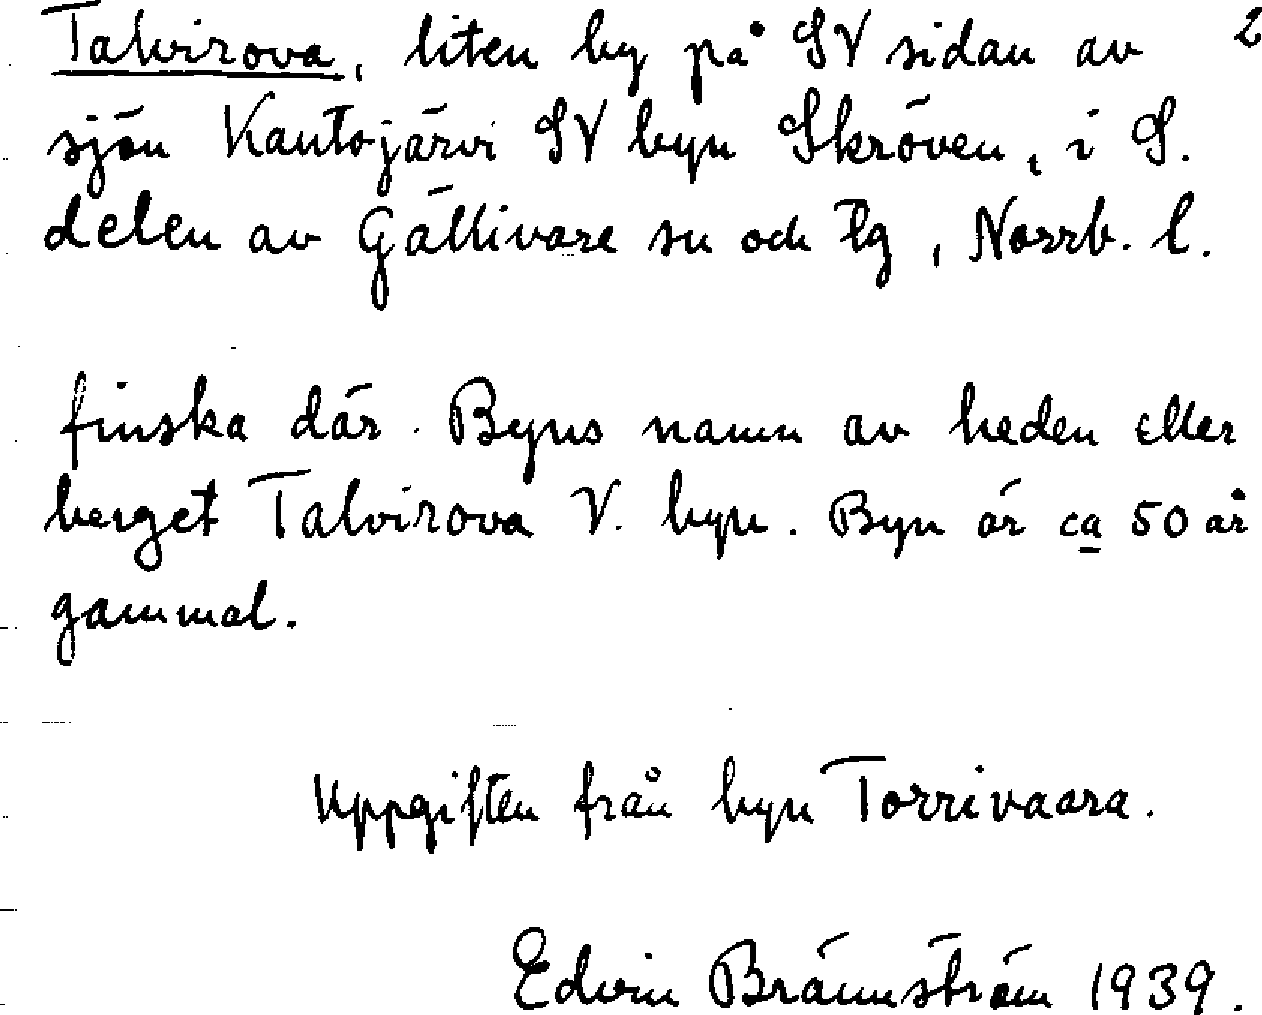 Talvirova, liten by på SV sidan av 2
sjön Kantojärvi SV byn Skröven, i S.
delen av Gällivare sn och tg, Norrb. l.
finska där. Byns namn av heden eller
berget Talvirova V. byn. Byn är ca 50 år
gammal.
Uppgiften från byn Torrivaara.
Edvin Brännström 1939.